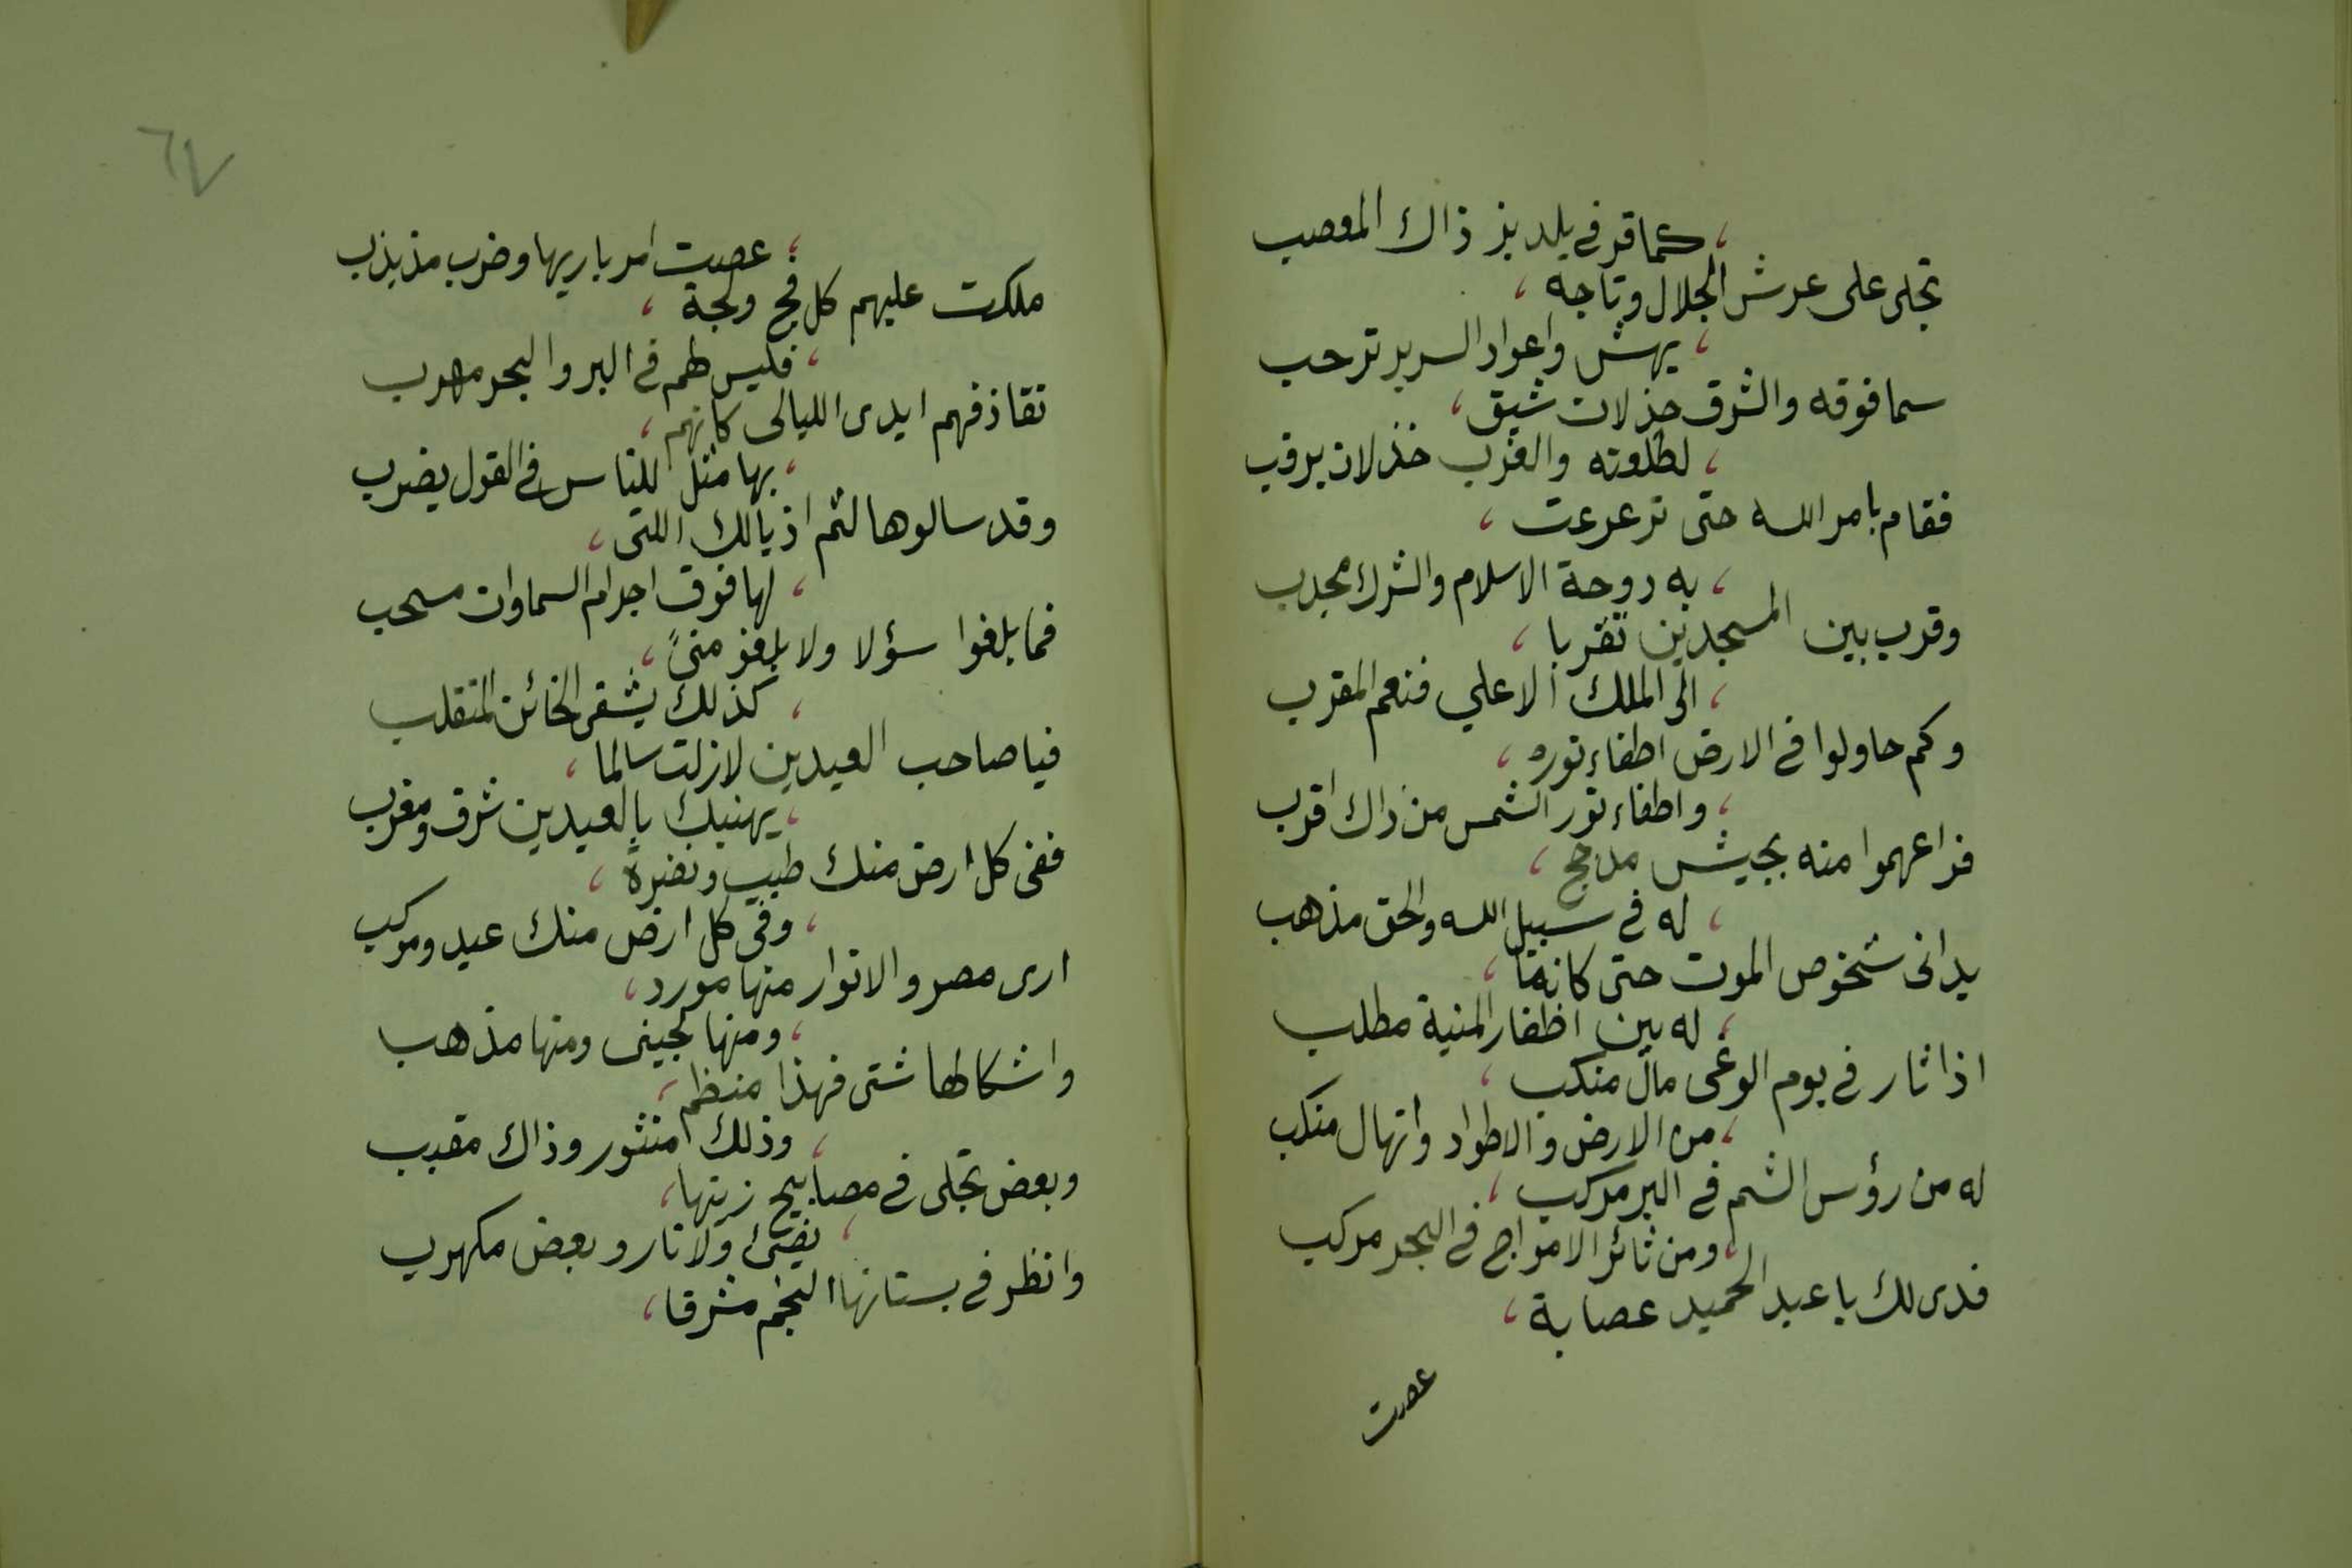 كما قر في يلديز ذاك المعصب
تجلى على عرش الجلال وتاجه ،
، يهش واعواد السرير ترحب
سما فوقه والشرق جذلان شيق ،
، لطلعته والغرب خذلان يرقب
فقام بامر الله حتى ترعرعت ،
، به دوحة الاسلام والشرك مجدب
وقرب بين المسجدين تقربا ،
، الى الملك الاعلي فنعم المقرب
وكم حاولوا في الارض اطفاء نوره ،
، واطفاء نور الشمس من ذاك اقرب
فراعهموا منه بجيش مدجج ،
، له في سبيل الله والحق مذهب
يدانى شخوص الموت حتى كانما ،
، له بين اظفار المنية مطلب
اذا ثار في يوم الوغى مال منكب ،
، من الارض والاطواد وانهال منكب
له من رؤس الشم في البر مركب ،
، ومن ثائر الامواج في البحر مركب
فدى لك يا عبد الحميد عصابة ،
عصت
٦٧
، عصت امر باريها وضرب مذبذب
ملكت عليهم كل فج ولجة ،
، فليس لهم في البر والبحر مهرب
تقاذفهم ايدى الليالى كانهم ،
، بها مثل للناس في القول يضرب
وقد سالوها لثم اذيالك اللتى ،
، لها فوق اجرام السماوات مسحب
فما بلغوا سؤلا ولا بلغو منىً ،
، كذلك يشقى الخائن المتقلب
فيا صاحب العيدين لازلت سالما ،
، يهنيك بالعيدين شرق ومغرب
ففى كل ارض منك طيب ونضرة ،
، وفى كل ارض منك عيد ومركب
ارى مصر والانوار منها مورد ،
، ومنها لجينى ومنها مذهب
واشكالها شتى فهذا منظم ،
، وذلك منثور وذاك مقبب
وبعض تجلى في مصابيح زيتها ،
، يضئ ولا نار وبعض مكهرب
وانظر في بستانها النجم مشرقا ،